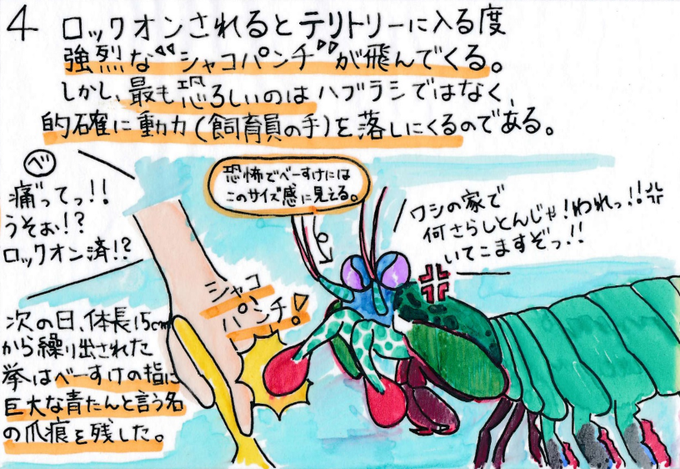 4 ロックオンされるとテリトリーに入る度
強烈な“シャコパンチ”が飛んでくる。
しかし、最も恐ろしいのはハブラシではなく、
的確に動力(飼育員の手)を落しにくるのである。
べ
痛ってっ!!
うそぉ!?
ロックオン済!?
恐怖でべーすけには
このサイズ感に見える。
ワシの家で
何さらしとんじゃ!われっ!!
いてこますぞっ!!
シャコ
パンチ!
次の日、体長15cm
から繰り出された
拳はべーすけの指に
巨大な青たんと言う名
の爪痕を残した。